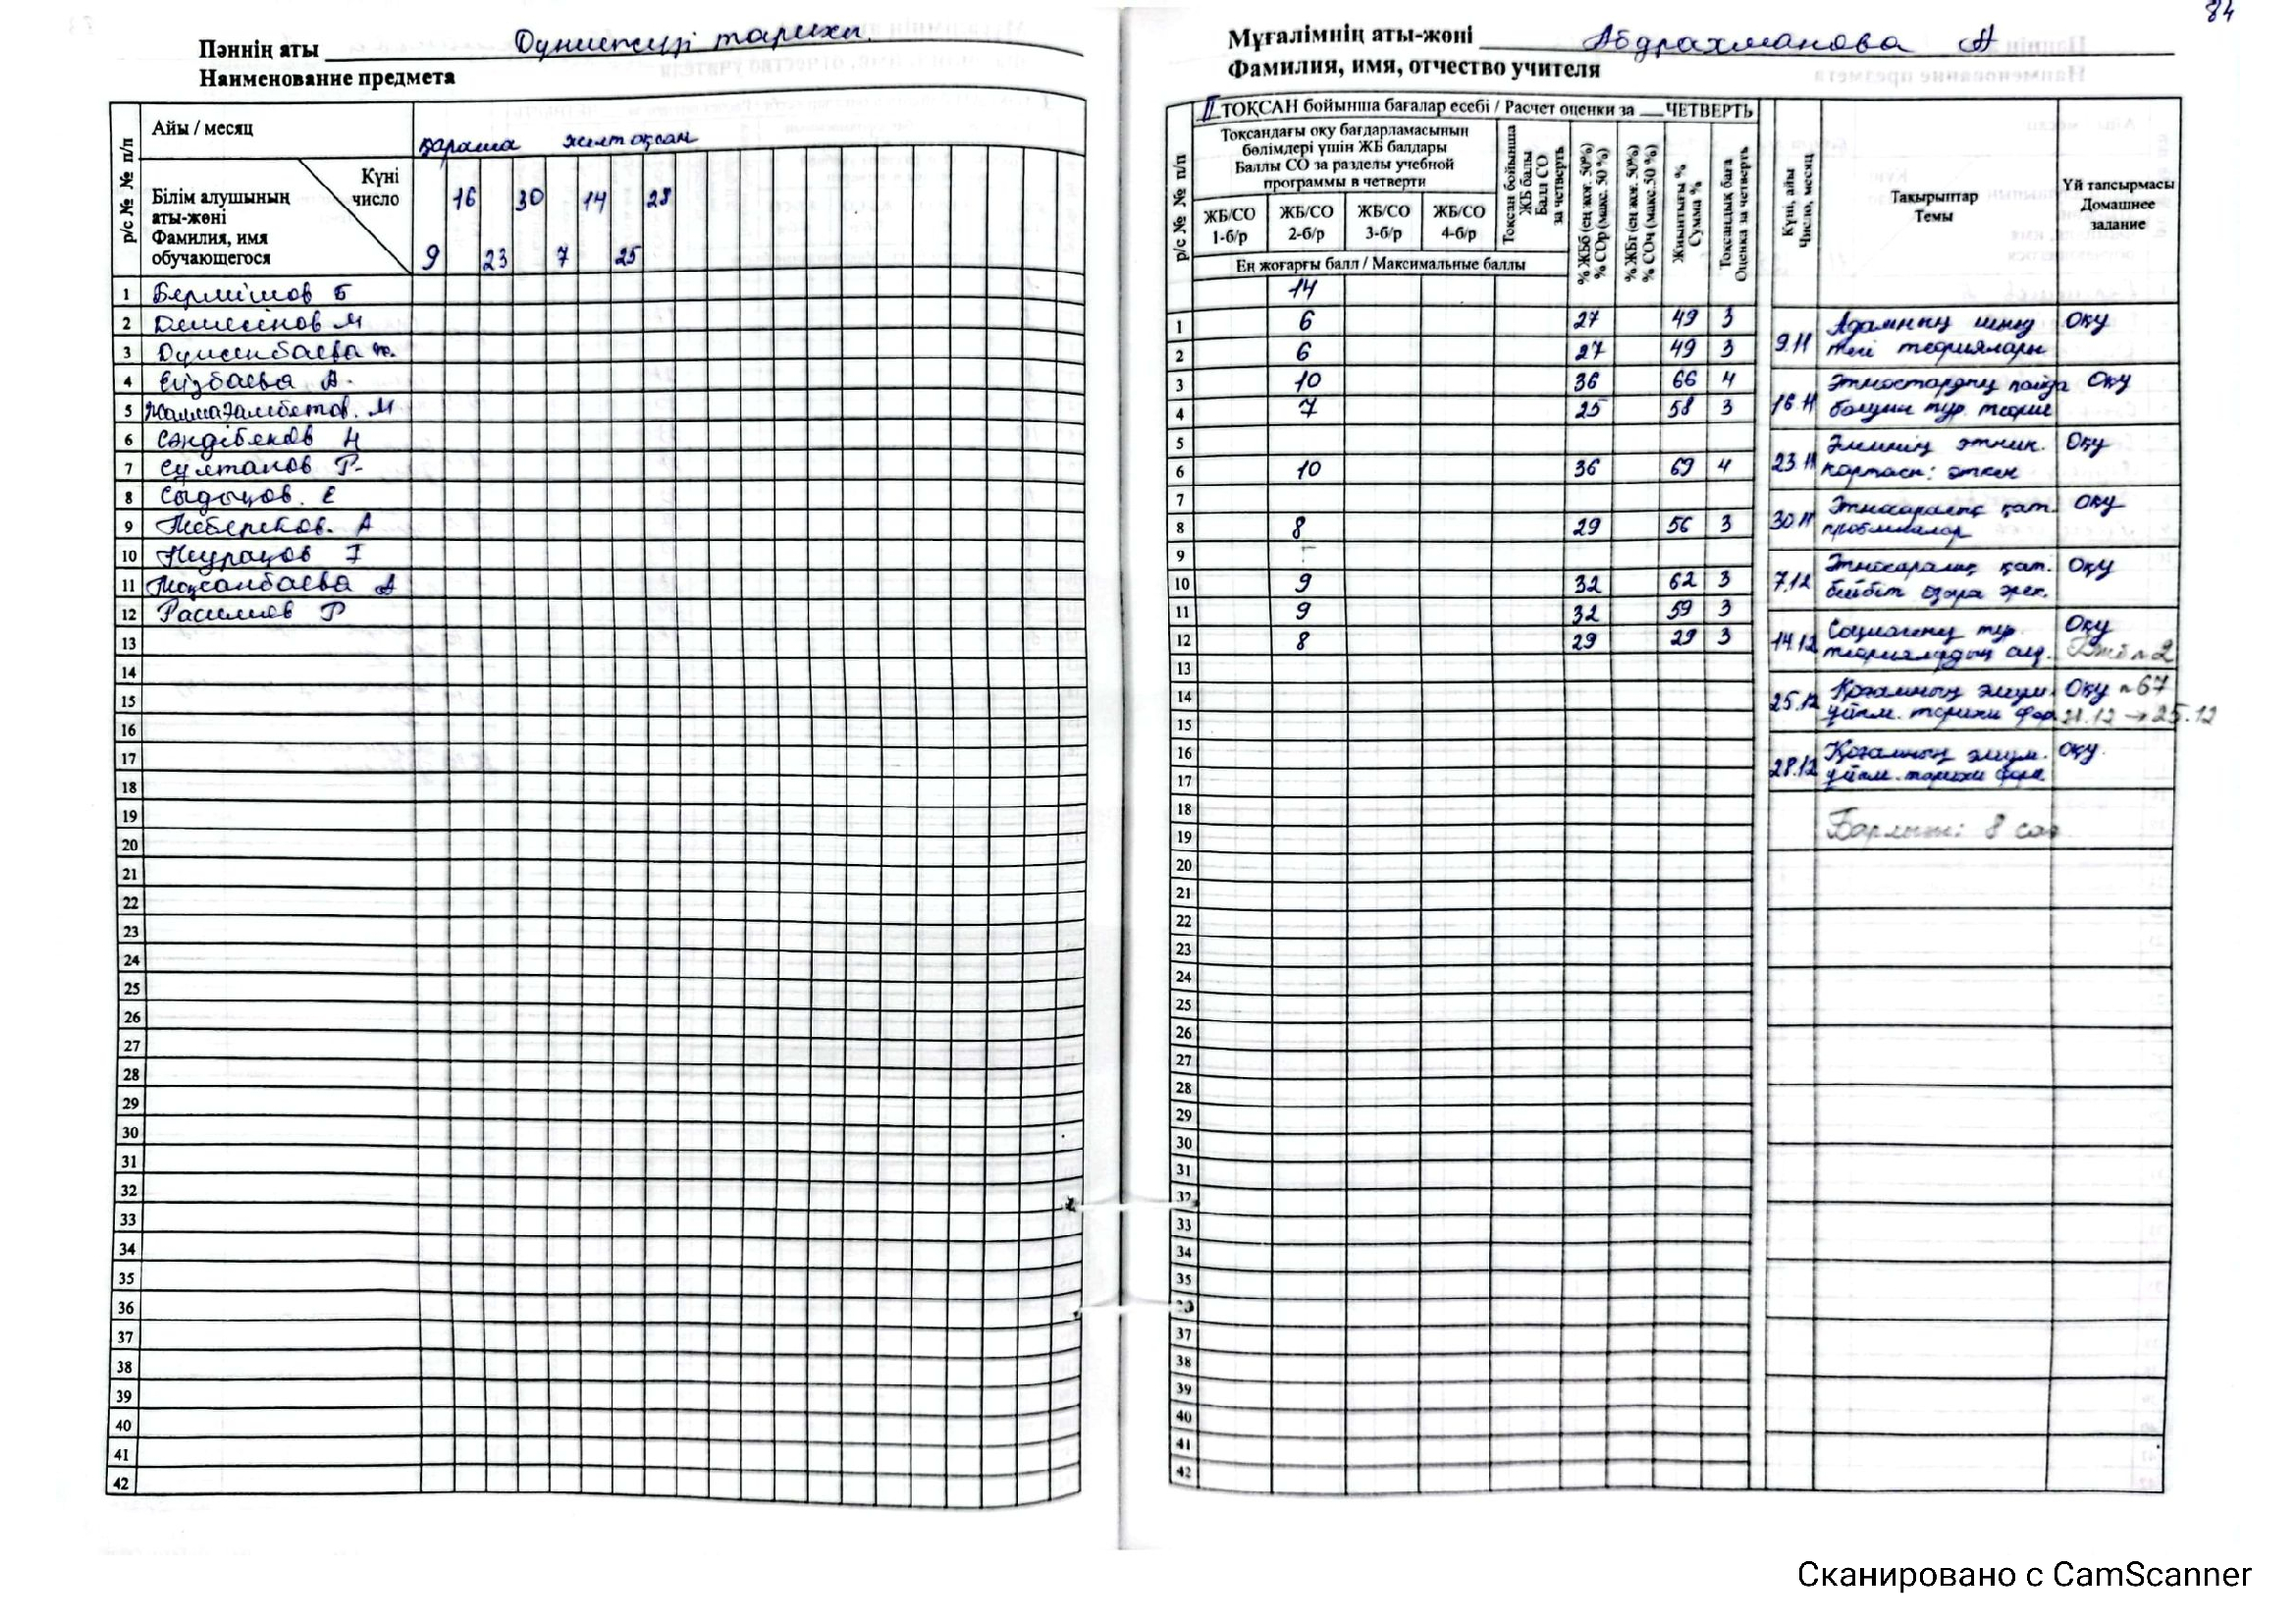 84
Пәннің аты Дүниежүзі тарихы.
Наименование предмета
р/с № № п/п
Айы / месяц
қараша желтоқсан
Күні
число
Білім алушының
аты-жөні
Фамилия, имя
обучающегося
16 30 14 28
9 23 7 25
1
2
3 Дүисенбаева
4 А.
5 М
6 Сәндібеков
7 Султанов Р.
8 Сыдықов. Е
9 А
10
11 А
12 Р
13
14
15
16
17
18
19
20
21
22
23
24
25
26
27
28
29
30
31
32
33
34
35
36
37
38
39
40
41
42
Мұғалімнің аты-жөні Абдрахманова А
Фамилия, имя, отчество учителя
р/с № № п/п
II ТОҚСАН бойынша бағалар есебі / Расчет оценки за ___ ЧЕТВЕРТЬ
Тоқсандағы оқу бағдарламасының
бөлімдері үшін ЖБ балдары
Баллы СО за разделы учебной
программы в четверти
ЖБ/СО 1-б/р
ЖБ/СО 2-б/р
ЖБ/СО 3-б/р
ЖБ/СО 4-б/р
Тоқсан бойынша
ЖБ балы
Балл СО
за четверть
% ЖБб (ең жоғ. 50%)
% СОр (макс. 50 %)
% ЖБт (ең жоғ. 50%)
% СОч (макс.50 %)
Жиынтығы %
Сумма %
Тоқсандық баға
Оценка за четверть
Күні, айы
Число, месяц
Тақырыптар
Темы
Үй тапсырмасы
Домашнее
задание
Ең жоғарғы балл / Максимальные баллы
14
1 6 27 49 3
2 6 27 49 3
3 10 36 66 4
4 7 25 58 3
5
6 10 36 69 4
7
8 8 29 56 3
9
10 9 32 62 3
11 9 32 59 3
12 8 29 29 3
13
14
15
16
17
18
19
20
21
22
23
24
25
26
27
28
29
30
31
32
33
34
35
37
38
39
40
41
42
9.11 Адамның шығу Оқу
тегі теориялары
16.11 Этностардың пайда Оқу
болуын түр. теория
23.11 Әлемнің этник. Оқу
картасы: өткен
30.11 Этносаралық қат. Оқу
проблемалар
7.12 Этносаралық қат. Оқу
бейбіт өзара әрек.
14.12 Оқу
25.12 Қоғамның әлеум. Оқу №67
ұйым. тарихи 21.12 → 25.12
28.12 Қоғамның әлеум. оқу.
ұйым. тарихи
Барлығы: 8 сағ
Сканировано с CamScanner